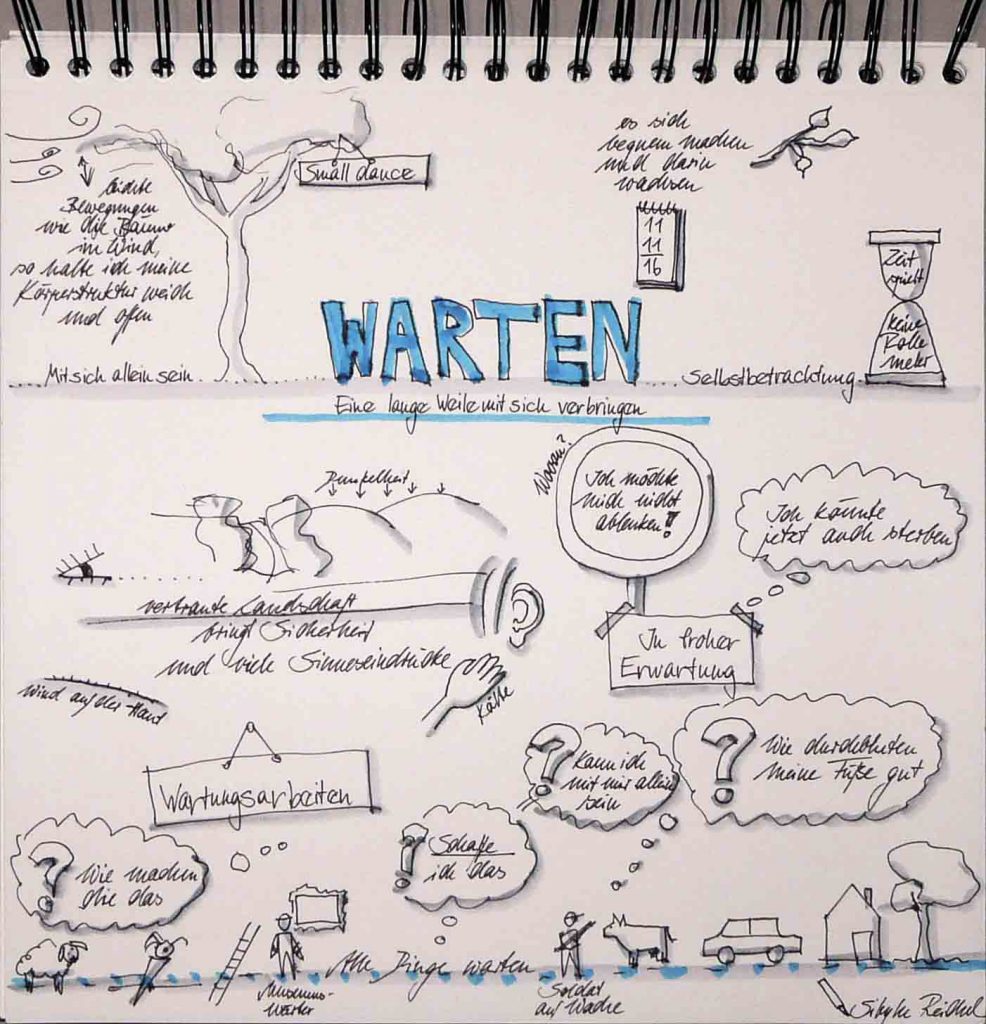 Small dance
leichte
Bewegungen
wie die Bäume
im Wind,
so halte ich meine
Körperstruktur weich
und offen
es sich
bequem machen
und darin
wachsen
11
11
16
Zeit
spielt
keine
Rolle
mehr
WARTEN
Mit sich allein sein
Selbstbetrachtung
Eine lange Weile mit sich verbringen
Dunkelheit
Woran?
Ich möchte
mich nicht
ablenken!
Ich könnte
jetzt auch sterben
vertraute Landschaft
bringt Sicherheit
und viele Sinneseindrücke
In froher
Erwartung
Wind auf der Haut
Kälte
Wartungsarbeiten
?
Kann ich
mit mir allein
sein
?
Wie durchbluten
meine Füße gut
?
Wie machen
die das
?
Schaffe
ich das
Alle Dinge warten
Museums-
wärter
Soldat
auf Wache